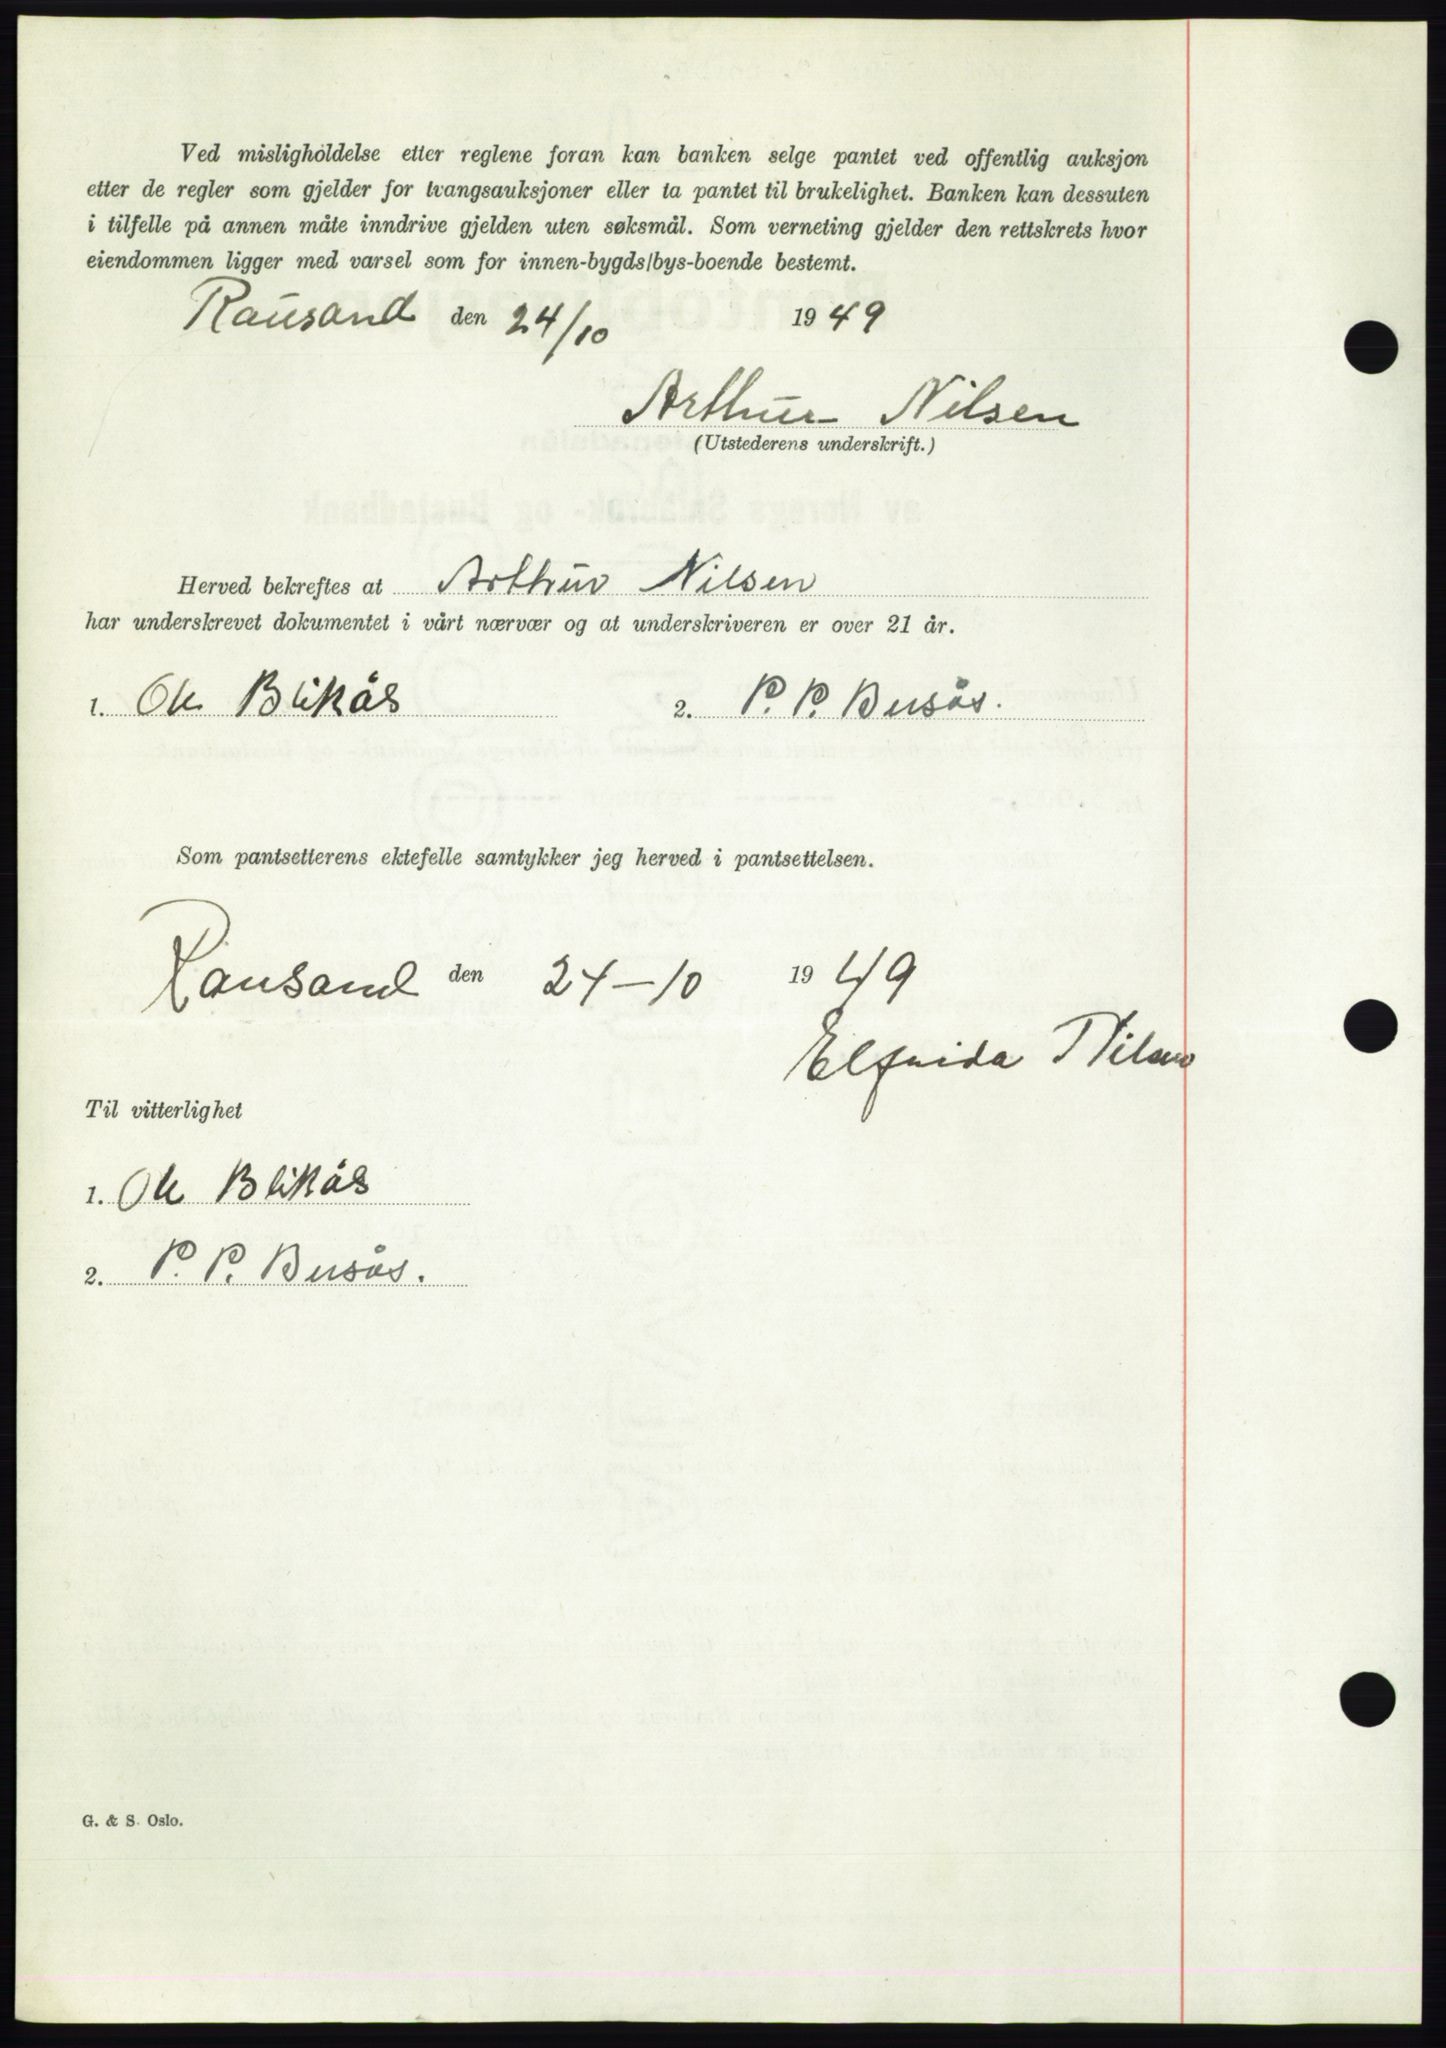 Ved misligholdelse etter reglene foran kan banken selge pantet ved offentlig auksjon
etter de regler som gjelder for tvangsauksjoner eller ta pantet til brukelighet. Banken kan dessuten
i tilfelle på annen måte inndrive gjelden uten søksmål. Som verneting gjelder den rettskrets hvor
eiendommen ligger med varsel som for innen-bygds/bys-boende bestemt.
Rausand den 24/10 1949
Arthur Nilsen
(Utstederens underskrift.)
Herved bekreftes at Arthur Nilsen
har underskrevet dokumentet i vårt nærvær og at underskriveren er over 21 år.
1. Ole Blikås 2. P. P. Busås.
Som pantsetterens ektefelle samtykker jeg herved i pantsettelsen.
Rausand den 24-10 1949
Elfrida Nilsen
Til vitterlighet
1. Ole Blikås
2. P. P. Busås.
G. & S. Oslo.